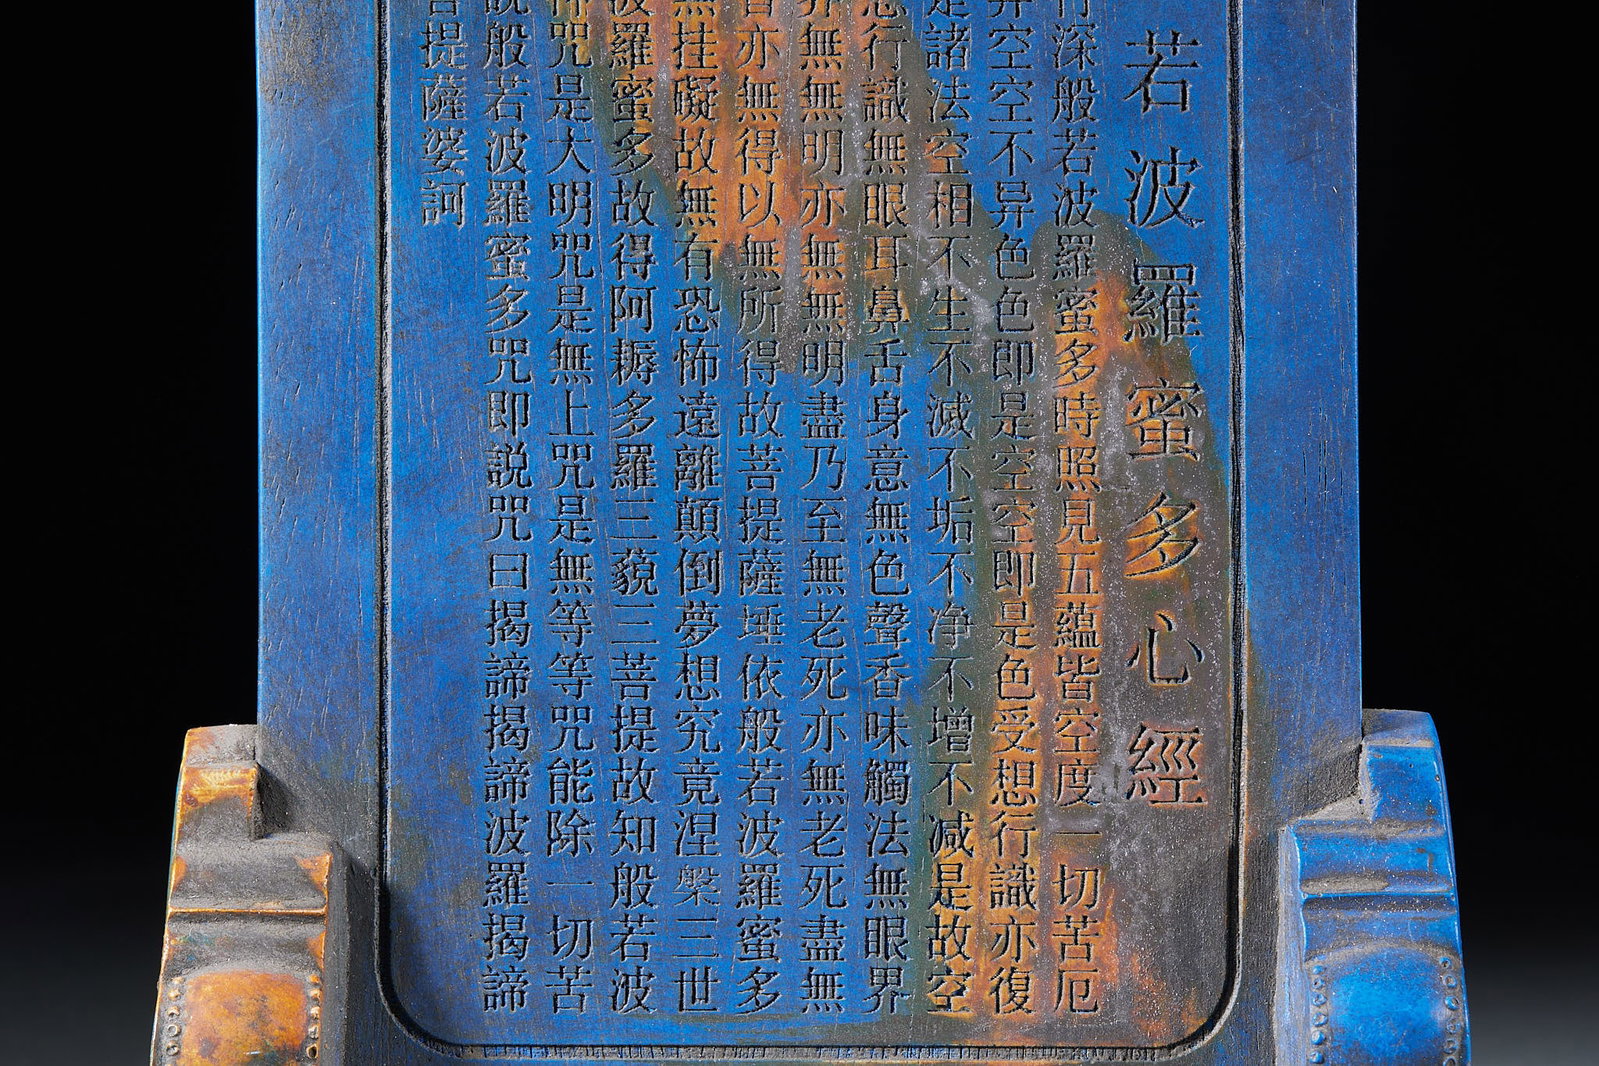 若波羅蜜多心經
行深般若波羅蜜多時照見五蘊皆空度一切苦厄
异空空不异色色即是空空即是色受想行識亦復
是諸法空相不生不滅不垢不净不增不减是故空
想行識無眼耳鼻舌身意無色聲香味觸法無眼界
界無無明亦無無明盡乃至無老死亦無老死盡無
智亦無得以無所得故菩提薩埵依般若波羅蜜多
無挂礙故無有恐怖遠離顛倒夢想究竟涅槃三世
波羅蜜多故得阿耨多羅三藐三菩提故知般若波
咒是大明咒是無上咒是無等等咒能除一切苦
説般若波羅蜜多咒即説咒曰揭諦揭諦波羅揭諦
菩提薩婆訶